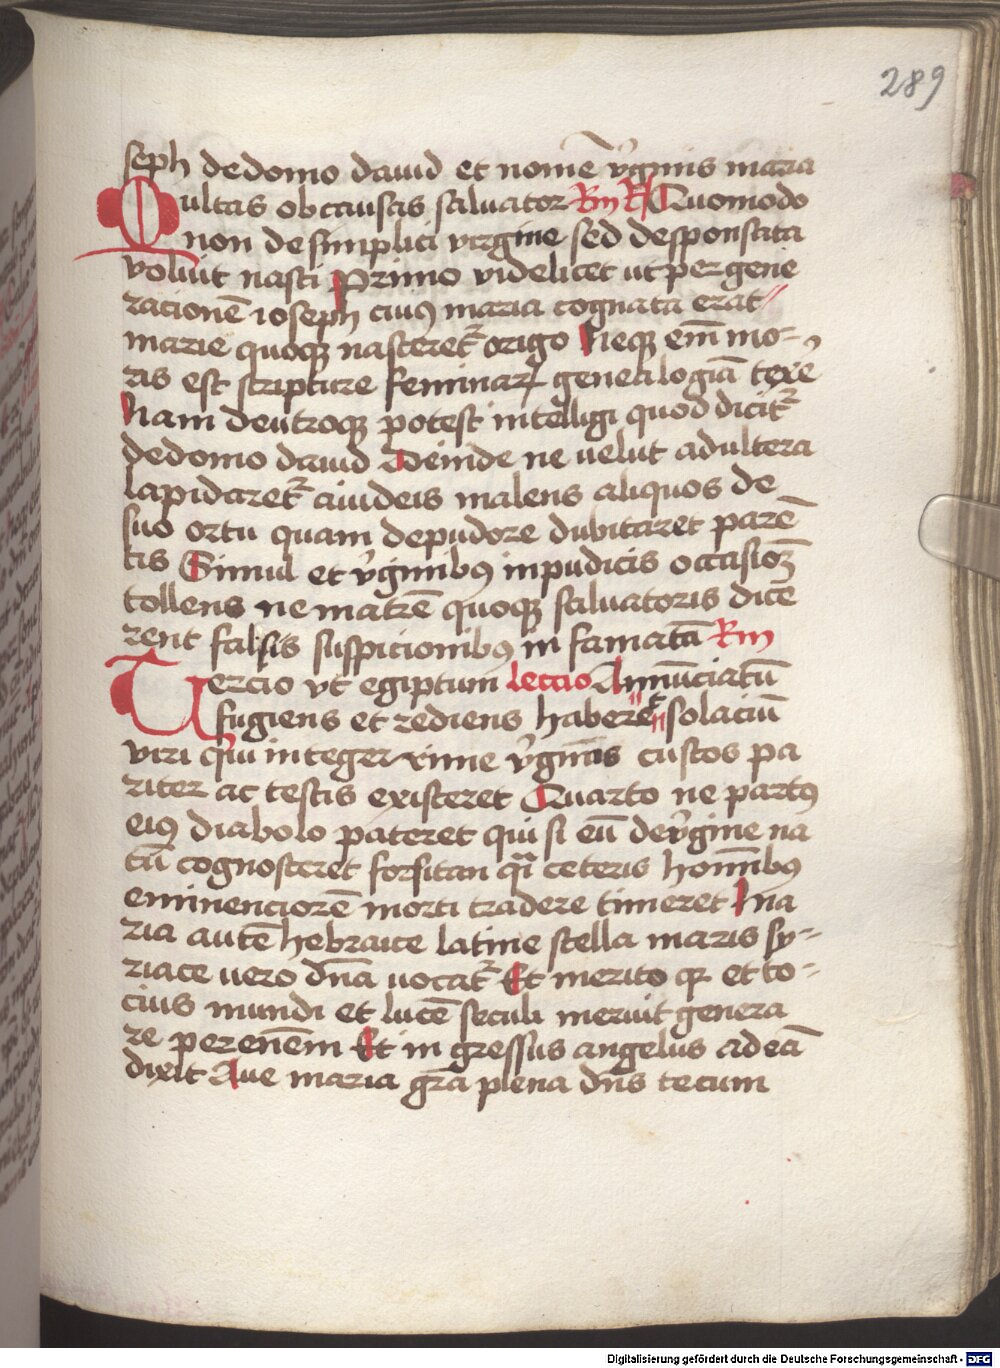 289
seph de domo dauid et nomē v̓ginis maria
Multas ob causas saluator Rm R̷ Quomodo
non de simplici virgine sed desponsata
voluit nasci Primo videlicet ut per gene
racionē ioseph cuiꝯ maria cognata erat
marie quoqꝫ nasceret᷑ origo Neqꝫ em̄ mo-
ris est scripture feminaꝝ genealogiā texe
Nam de utroqꝫ potest intelligi quod dicit᷑
de domo dauid Deinde ne velut adultera
lapidaret᷑ a iudeis malens aliquos de
suo ortu quam de pudore dubitaret parē
tis Simul et v̓ginibꝯ inpudicis occasiōꝫ
tollens ne matrē quoqꝫ saluatoris dice
rent falsis suspicionibꝯ in famatā Rm
Tercio vt egiptum leccio Annūciatū
fugiens et rediens haberet solaciū
viri qui integerrime v̓ginis custos pa
riter ac testis existeret Quarto ne partꝯ
eiꝯ diabolo pateret qui si eū de v̓gine na
tū cognosceret forsitan q̄i ceteris hom̄ibꝯ
eminenciorē morti tradere timeret Ma
ria autē hebraice latine stella maris sy-
riace uero dn̄a uocat᷑ Et merito qꝛ et to-
cius mundi et lucē seculi meruit genera
re perennē Et in gressus angelus ad eā
dixit Aue maria gr̄a plena dn̄s tecum
Digitalisierung gefördert durch die Deutsche Forschungsgemeinschaft - DFG